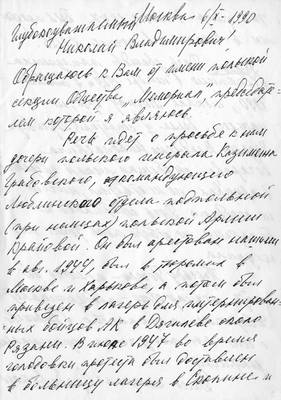 Москва 6/IX - 1990
Глубокоуважаемый
Николай Владимирович!
Обращаюсь к Вам от имени польской
секции Общества "Мемориал", председате-
лем которой я являюсь.
Речь идет о просьбе к ним
дочери польского генерала Казимежа
Грабовского, командующего
Люблинского отдела подпольной
(при немцах) польской Армии
Крайовой. Он был арестован нашими
в авг. 1944, был в тюрьмах в
Москве и Харькове, а потом был
привезен в лагерь для интернирован-
ных бойцов АК в Дягилеве около
Рязани. В июле 1947 во время
голодовки протеста был доставлен
в больницу лагеря в Скопине и